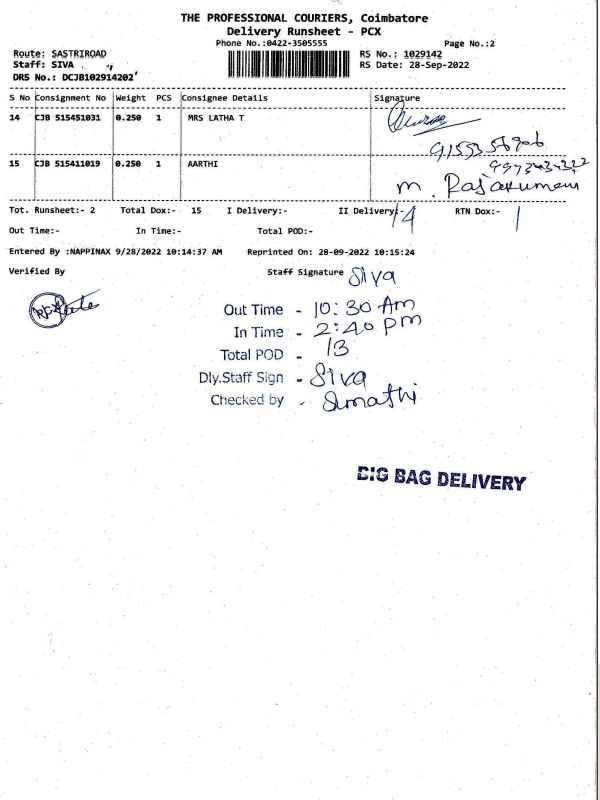 THE PROFESSIONAL COURIERS, Coimbatore
Delivery Runsheet - PCX
Phone No.:0422-3505555 Page No.:2
Route: SASTRIROAD RS No.: 1029142
Staff: SIVA RS Date: 28-Sep-2022
DRS No.: DCJB102914202
S No Consignment No Weight PCS Consignee Details Signature
14 CJB 515451031 0.250 1 MRS LATHA T
15 CJB 515411019 0.250 1 AARTHI
M. Rajakumari
Tot. Runsheet:- 2 Total Dox:- 15 I Delivery:- II Delivery:- 14 RTN Dox:- 1
Out Time:- In Time:- Total POD:-
Entered By :NAPPINAX 9/28/2022 10:14:37 AM Reprinted On: 28-09-2022 10:15:24
Verified By Staff Signature Siva
Out Time - 10:30 Am
In Time - 2:40 pm
Total POD - 13
Dly.Staff Sign - Siva
Checked by -
BIG BAG DELIVERY